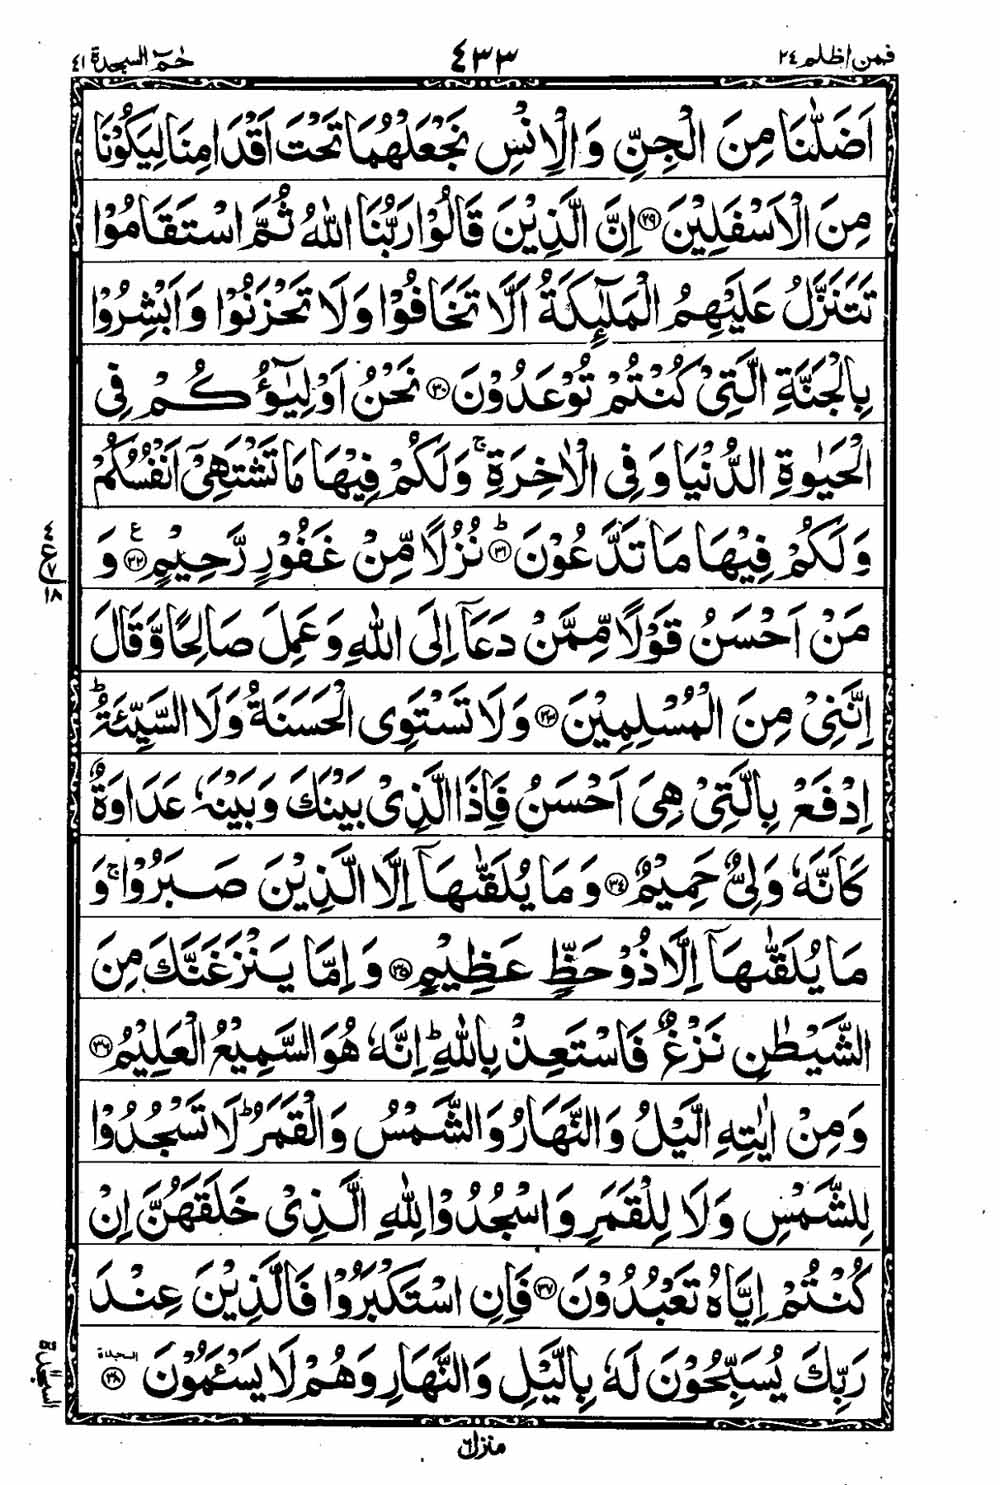 فمن اظلم ٢٤
٤٣٣
حٰمٓ السجدة ٤١
اَضَلّٰنَا مِنَ الْجِنِّ وَ الْاِنْسِ نَجْعَلْهُمَا تَحْتَ اَقْدَامِنَا لِيَكُوْنَا
مِنَ الْاَسْفَلِيْنَ ﴿٢٩﴾ اِنَّ الَّذِيْنَ قَالُوْا رَبُّنَا اللّٰهُ ثُمَّ اسْتَقَامُوْا
تَتَنَزَّلُ عَلَيْهِمُ الْمَلٰٓئِكَةُ اَلَّا تَخَافُوْا وَلَا تَحْزَنُوْا وَاَبْشِرُوْا
بِالْجَنَّةِ الَّتِيْ كُنْتُمْ تُوْعَدُوْنَ ﴿٣٠﴾ نَحْنُ اَوْلِيٰٓؤُكُمْ فِي
الْحَيٰوةِ الدُّنْيَا وَفِي الْاٰخِرَةِ ۚ وَلَكُمْ فِيْهَا مَا تَشْتَهِيْٓ اَنْفُسُكُمْ
وَلَكُمْ فِيْهَا مَا تَدَّعُوْنَ ؕ ﴿٣١﴾ نُزُلًا مِّنْ غَفُوْرٍ رَّحِيْمٍ ﴿٣٢﴾ ع وَ
مَنْ اَحْسَنُ قَوْلًا مِّمَّنْ دَعَآ اِلَى اللّٰهِ وَعَمِلَ صَالِحًا وَّقَالَ
اِنَّنِيْ مِنَ الْمُسْلِمِيْنَ ﴿٣٣﴾ وَلَا تَسْتَوِي الْحَسَنَةُ وَلَا السَّيِّئَةُ ؕ
اِدْفَعْ بِالَّتِيْ هِيَ اَحْسَنُ فَاِذَا الَّذِيْ بَيْنَكَ وَبَيْنَهٗ عَدَاوَةٌ
كَاَنَّهٗ وَلِيٌّ حَمِيْمٌ ﴿٣٤﴾ وَمَا يُلَقّٰىهَآ اِلَّا الَّذِيْنَ صَبَرُوْا ۚ وَ
مَا يُلَقّٰىهَآ اِلَّا ذُوْ حَظٍّ عَظِيْمٍ ﴿٣٥﴾ وَاِمَّا يَنْزَغَنَّكَ مِنَ
الشَّيْطٰنِ نَزْغٌ فَاسْتَعِذْ بِاللّٰهِ ؕ اِنَّهٗ هُوَ السَّمِيْعُ الْعَلِيْمُ ﴿٣٦﴾
وَمِنْ اٰيٰتِهِ الَّيْلُ وَالنَّهَارُ وَالشَّمْسُ وَالْقَمَرُ ؕ لَا تَسْجُدُوْا
لِلشَّمْسِ وَلَا لِلْقَمَرِ وَاسْجُدُوْا لِلّٰهِ الَّذِيْ خَلَقَهُنَّ اِنْ
كُنْتُمْ اِيَّاهُ تَعْبُدُوْنَ ﴿٣٧﴾ فَاِنِ اسْتَكْبَرُوْا فَالَّذِيْنَ عِنْدَ
رَبِّكَ يُسَبِّحُوْنَ لَهٗ بِالَّيْلِ وَالنَّهَارِ وَهُمْ لَا يَسْـَٔمُوْنَ ﴿٣٨﴾ السجدة
٤
ع
٧
١٨
السجدة
منزل ٦